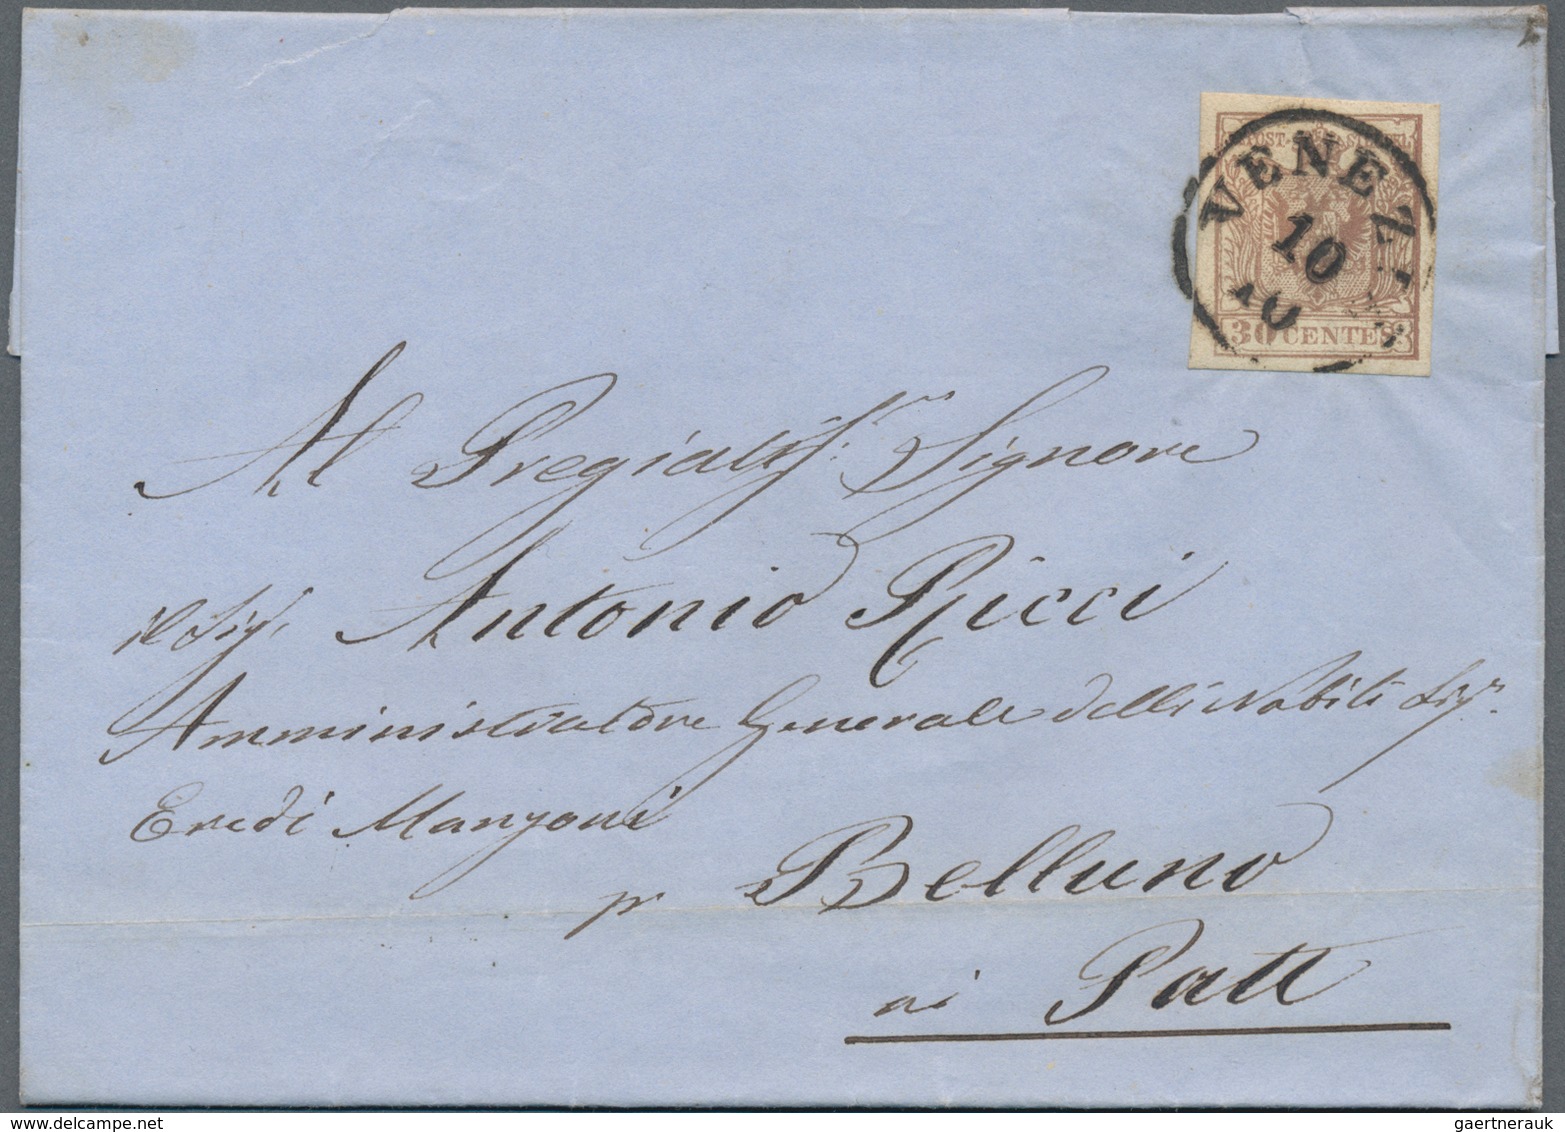 VENEZI
10
30 CENTES
Al Pregiatiss: Signore
il Sigr. Antonio Ricci
Amministratore Generale delli Nobili Sigri.
Eredi Manzoni
pr Belluno
ai Patt
delcampe.net
gaertnerauk